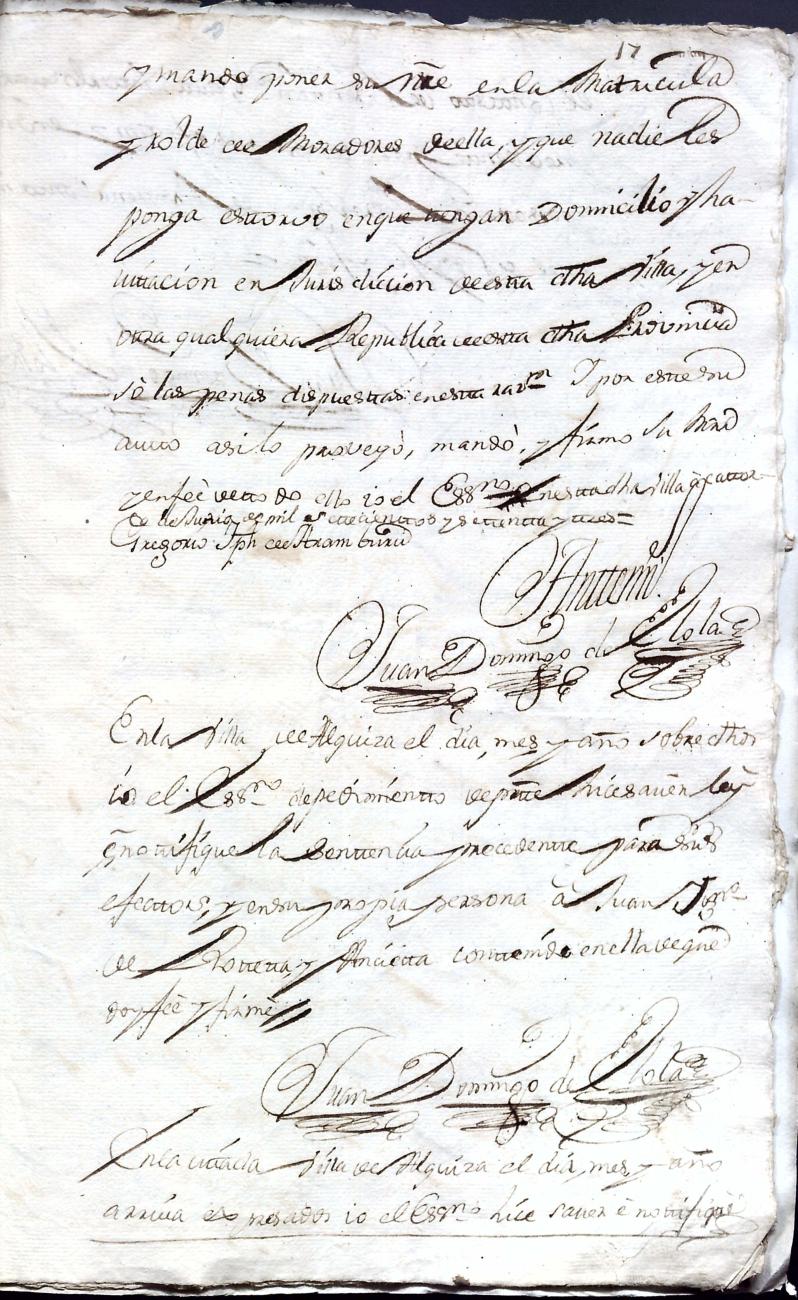 17
y mando poner su nre en la Matricula
y rol de de Moradores de ella, y que nadie les
ponga estorvo en que tengan Domicilio y ha-
vitacion en Jurisdiccion de esta dha Villa, y en
otra qualquiera Republica de esta dha Provincia
sò las penas dispuestas en esta razon Y por este su
auto asi lo proveyò, mandò, y firmo Su Mrd
y en feè de todo ello io el Essno en esta dha Villa à cator-
ce de Junio de mil setecienttos y setentta y tres =
Gregorio Jph de Aramburu
Anttemi
Juan Domingo de Elola
En la Villa de Alquiza el dia, mes y año sobre dhos
io el Essno de pedimientto de partte hice saver leÿ
è notifique la Senttencia precedentte para sus
efecttos, y en su propia persona à Juan Ignо
de Rotteta, y Ancietta conttenido en ella de que
doy feè y firmè //
Juan Domingo de Elola
En la cittada Villa de Alquiza el dia, mes y año
arriva expresados io el Essno hice saver è notifiquè